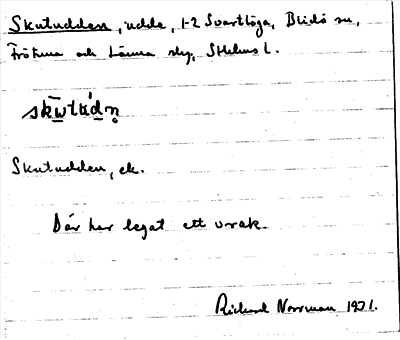 Skutudden, udde, 1-2 Svartlöga, Blidö sn,
Frötuna och Länna slg, Sthlms l.
Skutudden, ek.
Där har legat ett vrak.
Rickard Norrman 1971.